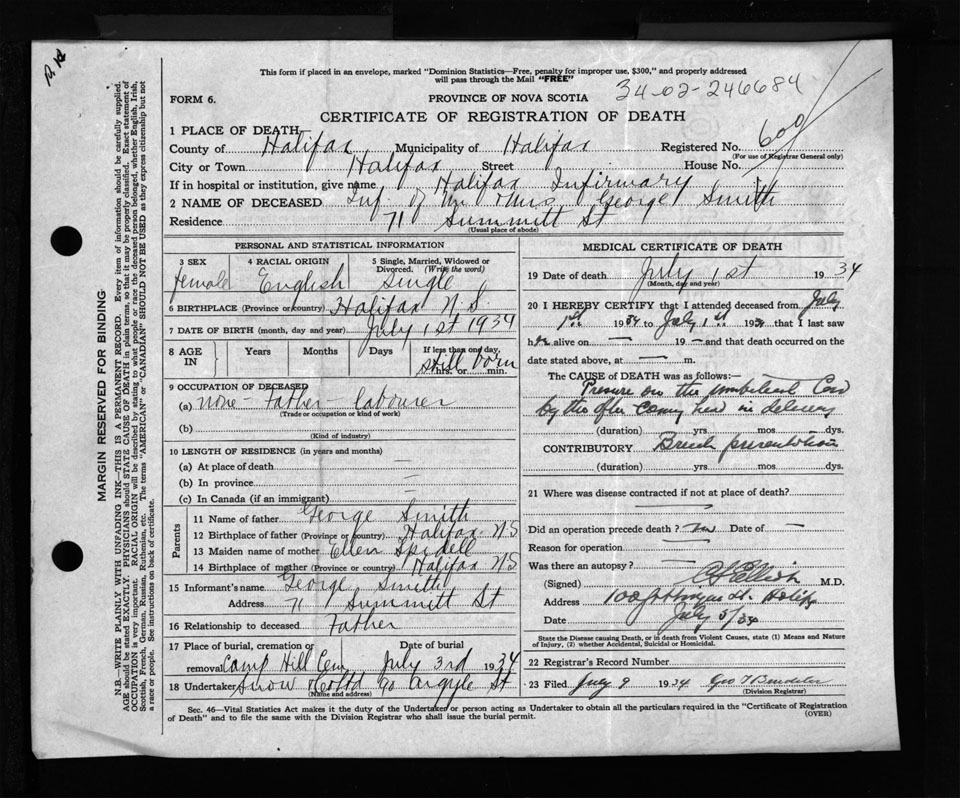 This form if placed in an envelope, marked "Dominion Statistics—Free, penalty for improper use, $300," and properly addressed
will pass through the Mail "FREE"
34-02-246684
FORM 6.
PROVINCE OF NOVA SCOTIA
CERTIFICATE OF REGISTRATION OF DEATH
1 PLACE OF DEATH
County of Halifax Municipality of Halifax Registered No. 600
(For use of Registrar General only)
City or Town Halifax Street House No.
If in hospital or institution, give name Halifax Infirmary
2 NAME OF DECEASED Inf. of Mr Mrs George Smith
Residence 71 Summitt St
(Usual place of abode)
PERSONAL AND STATISTICAL INFORMATION
3 SEX 4 RACIAL ORIGIN 5 Single, Married, Widowed or Divorced. (Write the word)
female English Single
6 BIRTHPLACE (Province or country) Halifax N.S.
7 DATE OF BIRTH (month, day and year) July 1st 1934
8 AGE IN Years Months Days If less than one day,
still born
hrs. or min.
9 OCCUPATION OF DECEASED
(a) none - Father labourer
(Trade or occupation or kind of work)
(b)
(Kind of industry)
10 LENGTH OF RESIDENCE (in years and months)
(a) At place of death —
(b) In province —
(c) In Canada (if an immigrant)
Parents
11 Name of father George Smith
12 Birthplace of father (Province or country) Halifax NS
13 Maiden name of mother Ellen Spidell
14 Birthplace of mother (Province or country) Halifax NS
15 Informant's name George Smith
Address 71 Summitt St
16 Relationship to deceased Father
17 Place of burial, cremation or removal Date of burial
Camp Hill Cem July 3rd 1934
18 Undertaker Snow & Co Ltd 90 Argyle St
(Name and address)
MEDICAL CERTIFICATE OF DEATH
19 Date of death July 1st 1934
(Month, day and year)
20 I HEREBY CERTIFY that I attended deceased from July
1st 1934 to July 1st 1934 that I last saw
h alive on — 19 — and that death occurred on the
date stated above, at — m.
The CAUSE of DEATH was as follows:—
Presure on the umbilical Cord
by the after coming head in delivery
(duration) yrs. mos. dys.
CONTRIBUTORY Breech presentation
(duration) yrs. mos. dys.
21 Where was disease contracted if not at place of death?
Did an operation precede death? no Date of —
Reason for operation —
Was there an autopsy? —
(Signed) M.D.
Address 100 St. Halifax
Date July 5/34
State the Disease causing Death, or in death from Violent Causes, state (1) Means and Nature
of Injury, (2) whether Accidental, Suicidal or Homicidal.
22 Registrar's Record Number
23 Filed July 9 1934 Geo
(Division Registrar)
Sec. 46—Vital Statistics Act makes it the duty of the Undertaker or person acting as Undertaker to obtain all the particulars required in the "Certificate of Registration
of Death" and to file the same with the Division Registrar who shall issue the burial permit.
(OVER)
MARGIN RESERVED FOR BINDING
N.B.—WRITE PLAINLY WITH UNFADING INK—THIS IS A PERMANENT RECORD. Every item of information should be carefully supplied.
AGE should be stated EXACTLY. PHYSICIANS should STATE CAUSE OF DEATH in plain terms, so that it may be properly classified. Exact statement of
OCCUPATION is very important. RACIAL ORIGIN will be described by stating to what people or race the deceased person belonged, whether English, Irish,
Scottish, French, German, Russian, Ruthenian, etc. The terms "AMERICAN" or "CANADIAN" SHOULD NOT BE USED as they express citizenship but not
a race or people. See instructions on back of certificate.